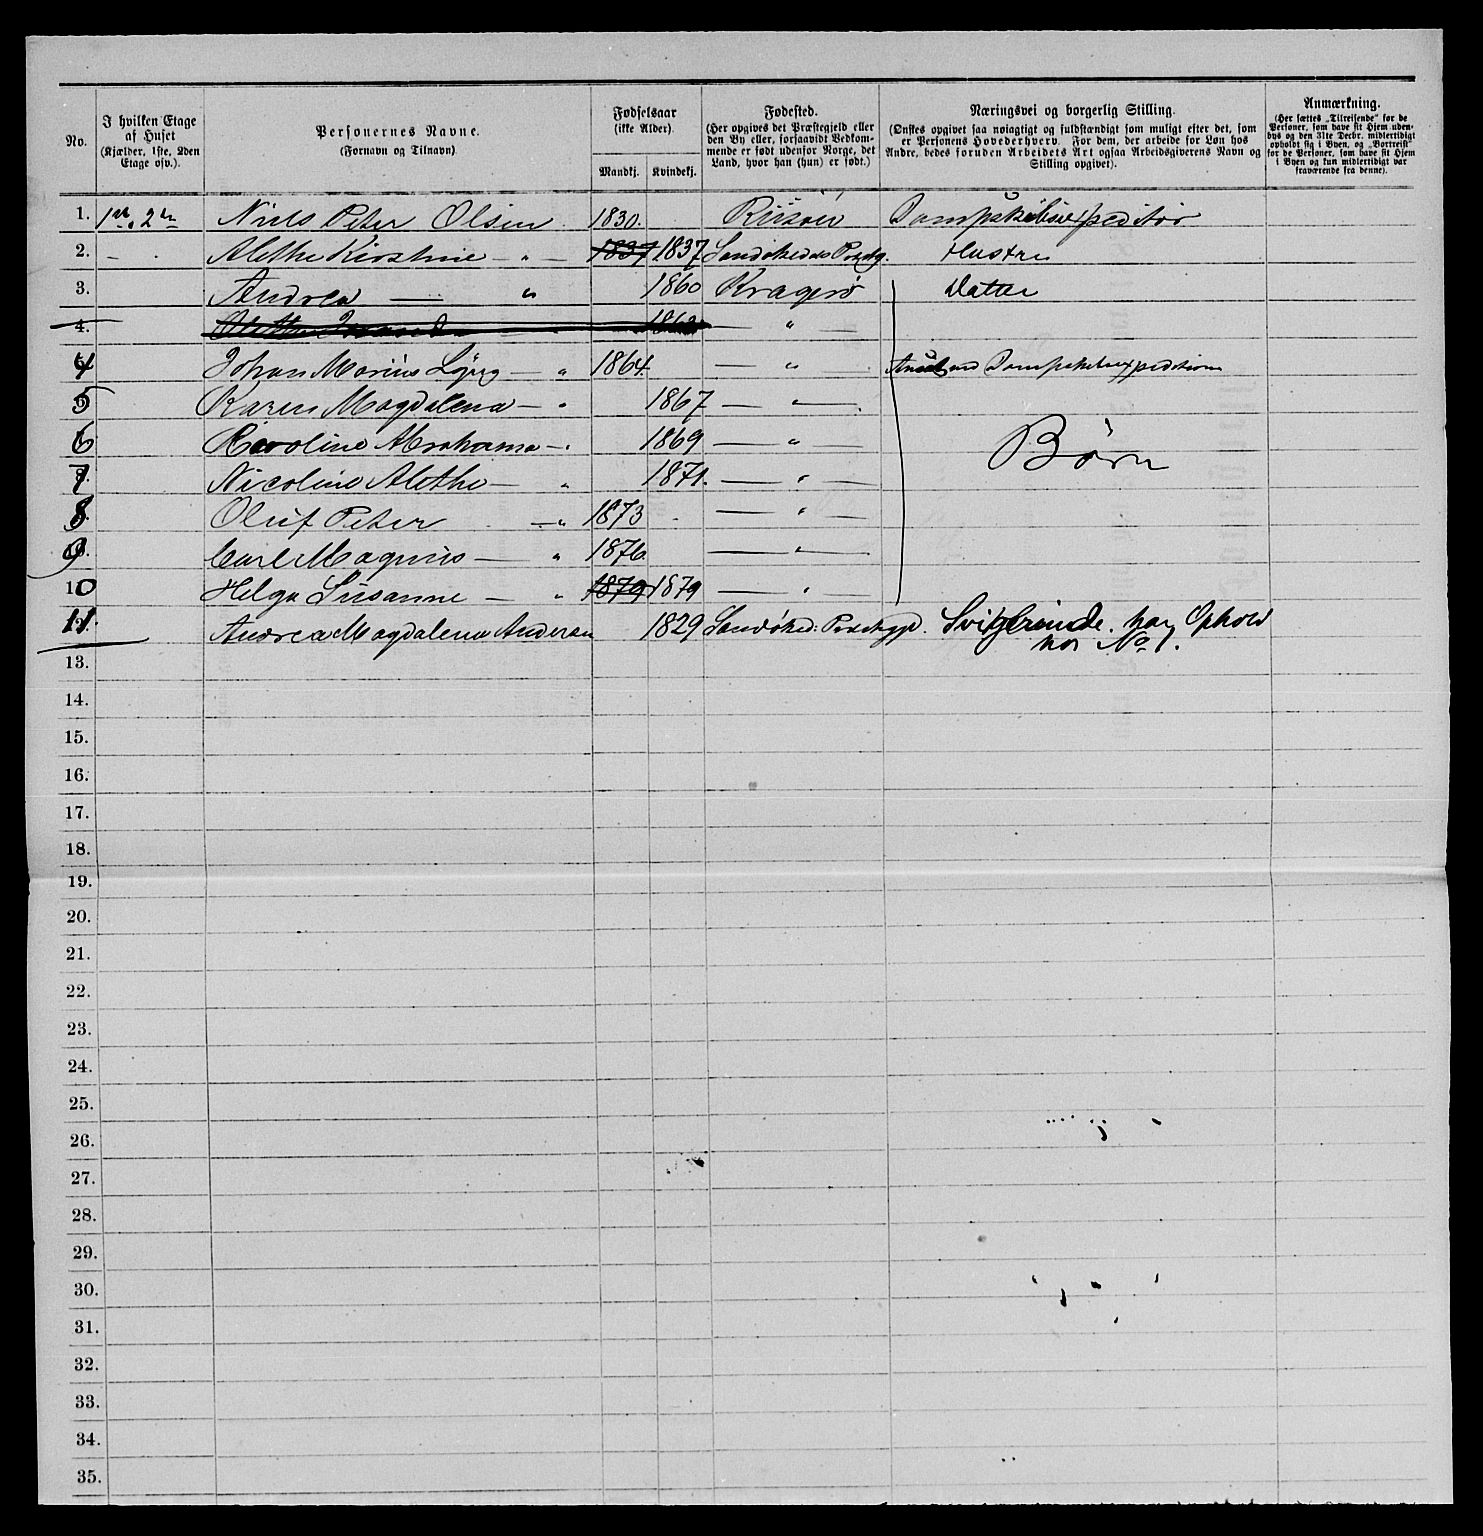 No.
I hvilken Etage
af Huset
(Kjælder, 1ste, 2den
Etage osv.).
Personernes Navne.
(Fornavn og Tilnavn)
Fødselsaar
(ikke Alder).
Mandkj. Kvindekj.
Fødested.
(Her opgives det Præstegjeld eller
den By eller, forsaavidt Vedkom-
mende er født udenfor Norge, det
Land, hvor han (hun) er født.)
Næringsvei og borgerlig Stilling.
(Ønskes opgivet saa nøiagtigt og fuldstændigt som muligt efter det, som
er Personens Hovederhverv. For dem, der arbeide for Løn hos
Andre, bedes foruden Arbeidets Art ogsaa Arbeidsgiverens Navn og
Stilling opgivet).
Anmærkning.
(Her sættes „Tilreisende" for de
Personer, som have sit Hjem uden-
bys og den 31te Decbr. midlertidigt
opholdt sig i Byen, og „Bortreist"
for de Personer, som have sit Hjem
i Byen og kun midlertidigt var
fraværende fra denne).
1. 1ste, 2den Niels Peter Olsen 1830. Riisøer Dampskibsexpeditør
2. – . Alethe Kirstine – „ – 1837 1837 Sandøkedals Præstg. Hustru
3. Andrea — „ 1860 Kragerø Datter
4. 1862 — „ —
4 Johan Marius Ljøng – „ 1864 — „ — Dampskibsexpedition
5 Karen Magdalena – „ 1867 — „ —
6 Karoline Abrahama – „ 1869 — „ — Børn
7 Nicoline Alethe – „ 1871. — „ —
8 Oluf Peter – „ 1873 — „ —
9 Carl Magnus – „ 1876 — „ —
10 Helga Susanne – „ 1879 1879 — „ —
11 Andrea Magdalena Andersen 1829 Sandøked: Præstegjd. Svigerinde. har Ophold
hos No 1.
13.
14.
15.
16.
17.
18.
19.
20.
21.
22.
23.
24.
25.
26.
27.
28.
29.
30.
31.
32.
33.
34.
35.